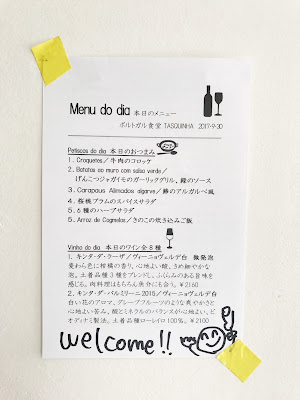 Menu do dia 本日のメニュー
ポルトガル食堂 TASQUINHA 2017-9-30
Petiscos do dia 本日のおつまみ
1. Croquetes／牛肉のコロッケ
2. Batatas ao muro com salsa verde／
げんこつジャガイモのガーリックグリル、緑のソース
3. Carapaus Alimados algarve／鯵のアルガルベ風
4. 桜桃プラムのスパイスサラダ
5. 6種のハーブサラダ
5. Arroz de Cogmelos／きのこの炊き込みご飯
Vinho do dia 本日のワイン全8種
1. キンタ・ダ・ラーザ／ヴィーニョヴェルデ白 微発泡
麦わら色に柑橘の香り。心地よい酸、きめ細やかな
泡。土着品種3種をブレンドし、ふくらみのある旨味を
感じる。肉料理はもちろん魚介にも合う。￥2160
2. キンタ・ダ・パルミリーニ2015／ヴィーニョヴェルデ白
白い花のアロマ、グレープフルーツのような爽やかさと
心地よい苦み。酸とミネラルのバランスが心地よい、ビ
オディナミ製法。土着品種ローレイロ100%。￥2100
welcome!!